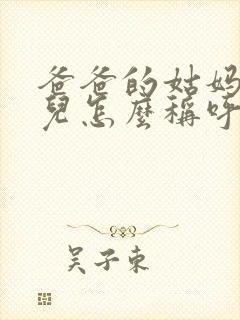 爸爸的姑妈
兒怎麼稱呼
吴子東